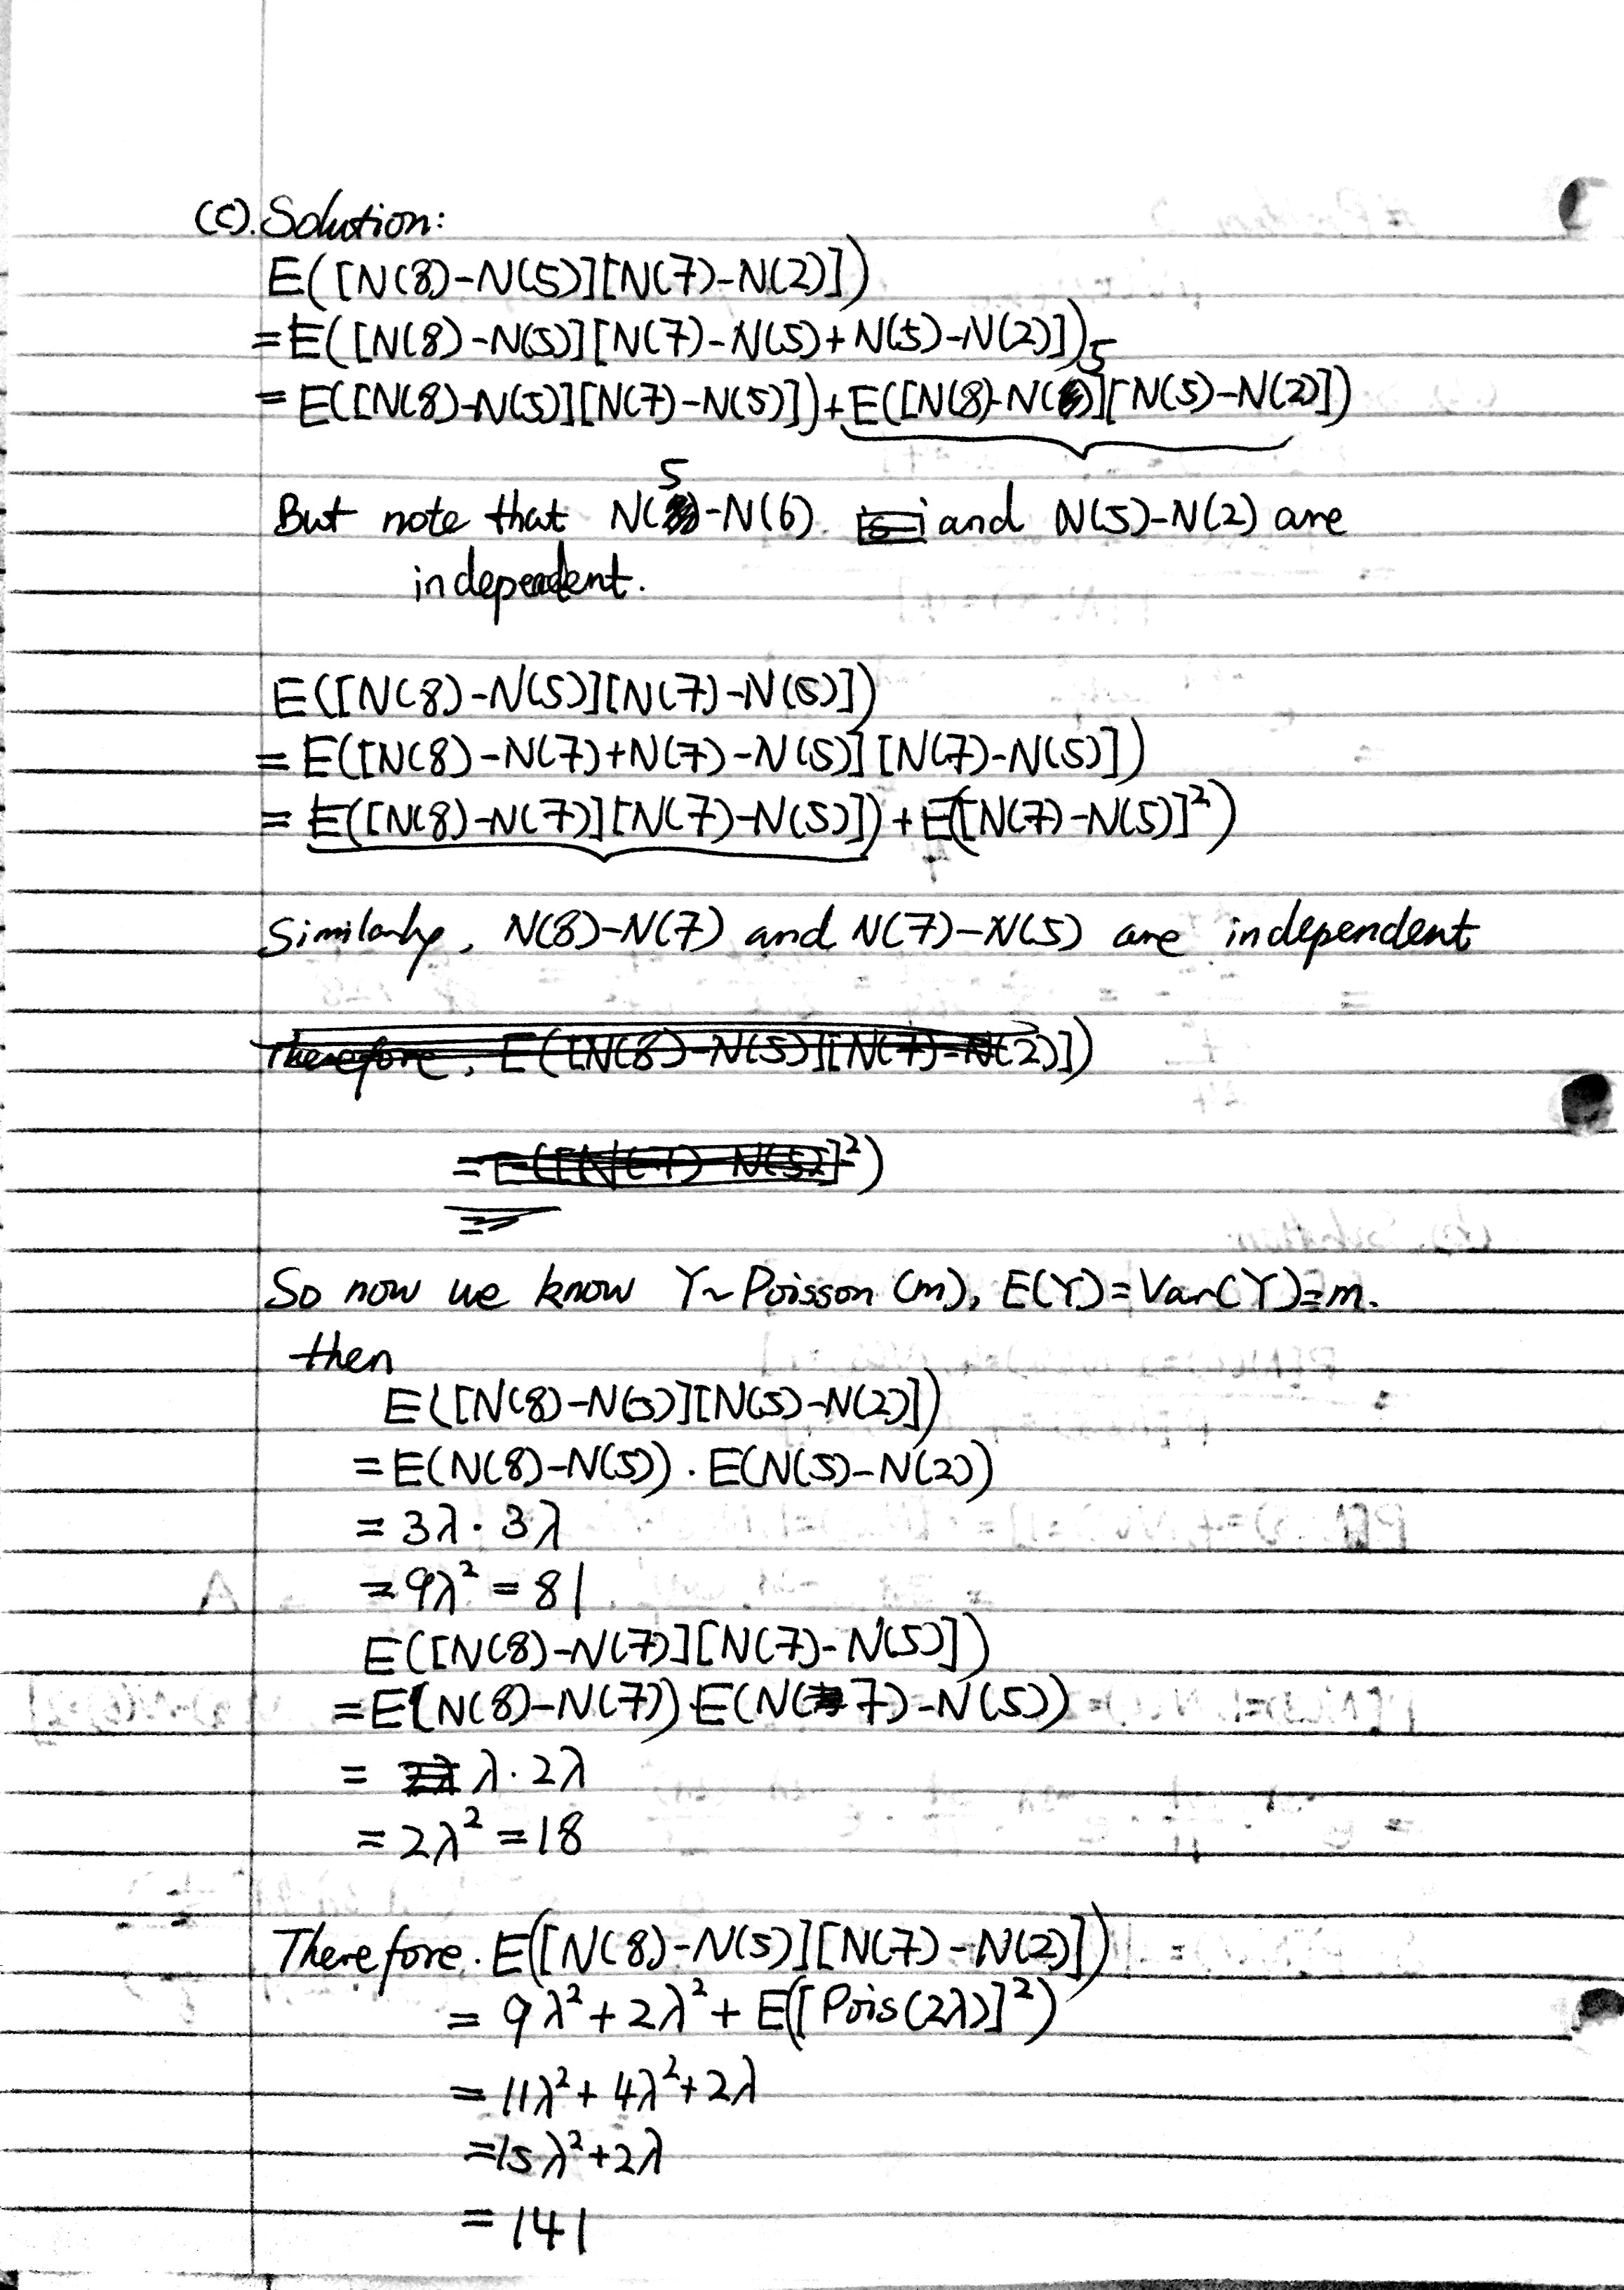 (c). Solution:
E([N(8)-N(5)][N(7)-N(2)])
=E([N(8)-N(5)][N(7)-N(5)+N(5)-N(2)])
= E([N(8)-N(5)][N(7)-N(5)])+E([N(8)-N(5)][N(5)-N(2)])
But note that N(5)-N(6) and N(5)-N(2) are
independent.
E([N(8)-N(5)][N(7)-N(5)])
= E([N(8)-N(7)+N(7)-N(5)][N(7)-N(5)])
= E([N(8)-N(7)][N(7)-N(5)])+E([N(7)-N(5)]²)
Similarly, N(8)-N(7) and N(7)-N(5) are independent
Therefore, E([N(8)-N(5)][N(7)-N(2)])
=E([N(7)-N(5)]²)
=
So now we know Y~Poisson (m), E(Y)=Var(Y)=m.
then
E([N(8)-N(5)][N(5)-N(2)])
=E(N(8)-N(5))·E(N(5)-N(2))
= 3λ·3λ
=9λ²=81
E([N(8)-N(7)][N(7)-N(5)])
=E(N(8)-N(7))·E(N(7)-N(5))
= λ·2λ
= 2λ²=18
Therefore. E([N(8)-N(5)][N(7)-N(2)])
= 9λ²+2λ²+E([Pois(2λ)]²)
= 11λ²+4λ²+2λ
=15λ²+2λ
= 141